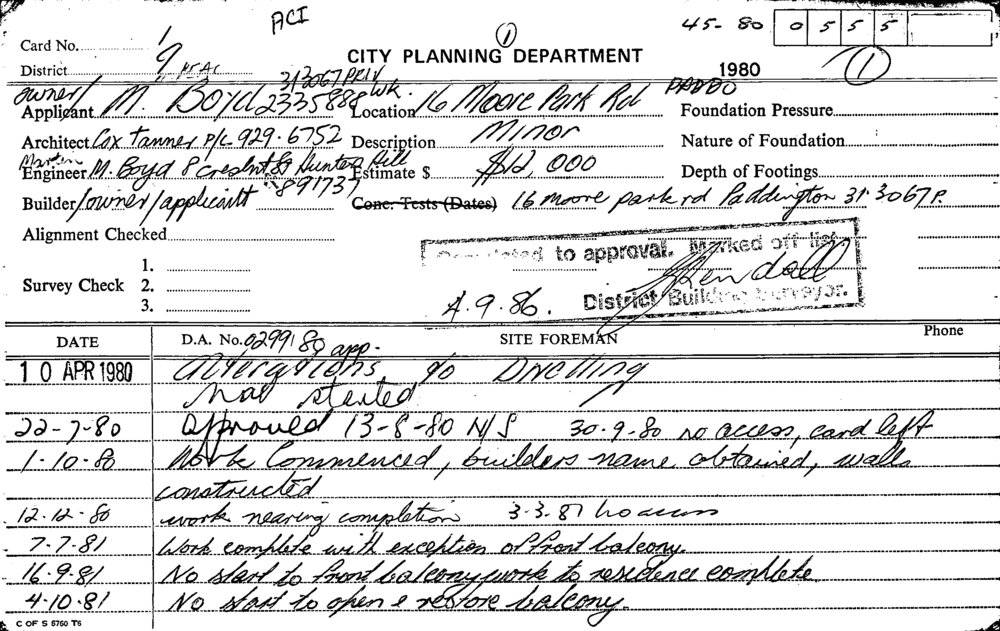 ACI
45-80 0 5 5 5
Card No. 1
CITY PLANNING DEPARTMENT
1
District 9
1980
1
313067 PRIV
owner/ Wk. PADDO
Applicant M. Boyd 2335888 Location 16 Moore Park Rd Foundation Pressure
Architect Cox Tanner P/L 929.6752 Description Minor Nature of Foundation
Engineer M. Boyd 8 Hunters Hill Estimate $ $12,000 Depth of Footings
891737
Builder/owner/applicant Conc. Tests (Dates) 16 moore park rd Paddington 31 3067 P.
Alignment Checked
Survey Check 1.
2.
3.
Completed to approval. Marked off list.
4.9.86. District Building Surveyor.
DATE D.A. No. 0299180 app. SITE FOREMAN Phone
10 APR 1980 Alterations to Dwelling
Not started
22-7-80 Approved 13-8-80 N/S 30.9.80 no access, card left
1.10.80 Work Commenced, builders name obtained, walls
constructed
12.12.80 work nearing completion 3.3.81 no access
7.7.81 Work complete with exception of front balcony.
16.9.81 No start to front balcony, work to residence complete
4.10.81 No start to open & restore balcony.
C OF S 6760 T6